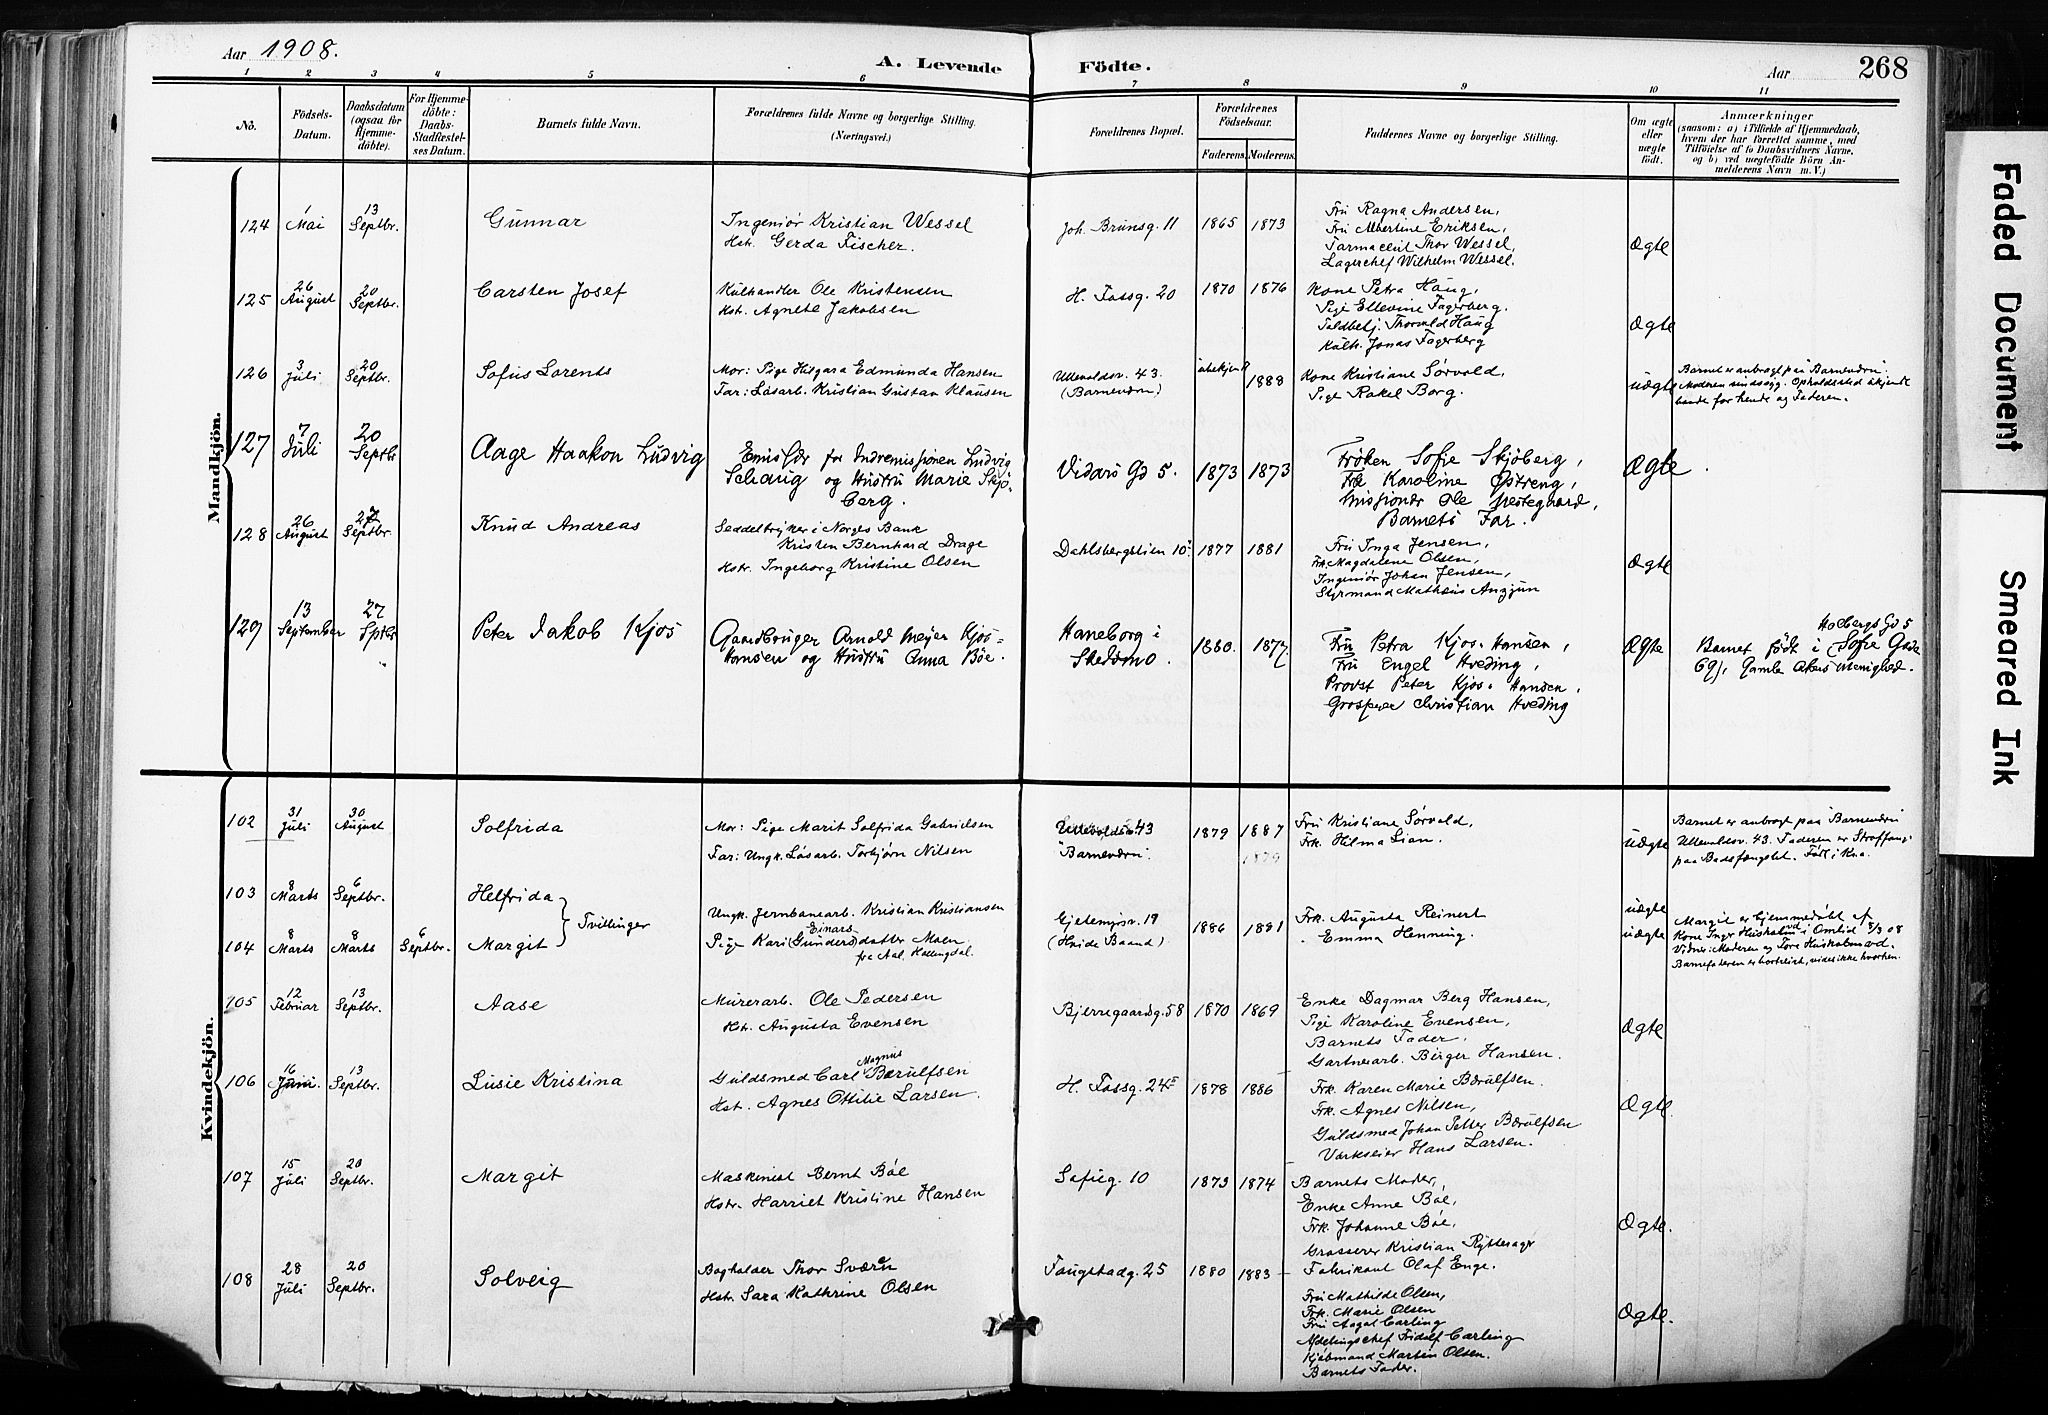 Aar 1908.
A. Levende Födte.
Aar
268
1 2 3 4 5 6 7 8 9 10 11
No.
Födsels-
Datum.
Daabsdatum
(ogsaa for
Hjemme-
döbte).
For Hjemme-
döbte:
Daabs-
Stadfæstel-
ses Datum.
Barnets fulde Navn.
Forældrenes fulde Navne og borgerlige Stilling.
(Næringsvei.)
Forældrenes Bopæl.
Forældrenes
Födselsaar.
Faderens. Moderens.
Faddernes Navne og borgerlige Stilling.
Om ægte
eller
uægte
födt.
Anmærkninger
(saasom: a) i Tilfælde af Hjemmedaab,
hvem der har forrettet samme, med
Tilföielse af to Daabsvidners Navne,
og b) ved uægtefödte Börn An-
melderens Navn m. V.)
Mandkjön.
124
1
Mai
13
Septbr.
Gunnar
Ingeniør Kristian Wessel
Hst. Gerda Fischer.
Joh. Brunsg. 11
1865
1873
Fru Ragna Andersen,
Fru Albertine Eriksen,
Farmaceut Thor Wessel,
Lagerchef Wilhelm Wessel.
Ægte
125
26
August
20
Septbr.
Carsten Josef
Kulhandler Ole Kristensen
Hst. Agnete Jakobsen
H. Fossg. 20
1870
1876
Kone Petra Haug,
Pige Ellevine Fagerberg.
Toldbetj. Thorvald Haug
Kulh. Jonas Fagerberg
Ægte
126
3
Juli
20
Septbr.
Sofus Lorents
Mor: Pige Hilgara Edmunda Hansen
Far: Løsarb. Kristian Gustav Klausen
Ullevoldsv. 43.
(Barnendrn)
ubekjendt
1888
Kone Kristiane Sørvold,
Pige Rakel Borg.
uægte
Barnet er anbragt paa Barnendrn.
Moderen sindssyg. Opholdssted ukjendt
baade for hende og Faderen.
127
7
Juli
20
Septbr
Aage Haakon Ludvig
Emissær for Indremissionen Ludvig
Schaug og Hustru Marie Skjø-
berg.
Vidars Gd 5.
1873
1873
Frøken Sofie Skjøberg,
Frk Karoline Østreng,
Missionær Ole Vestegaard,
Barnets Far.
Ægte
128
26
August
27
Septbr.
Knud Andreas
Seddeltrykker i Norges Bank
Kristen Bernhard Drage
Hst. Ingeborg Kristine Olsen
Dahlsbergstien 10
1877
1881
Fru Inga Jensen,
Frk. Magdalene Olsen,
Ingeniør Johan Jensen,
Styrmand Mathæus Anzjøn
Ægte
129
13
September
27
Sptbr
Peter Jakob Kjos
Gaardbruger Arnold Meyer Kjos-
Hansen og Hustru Anna Bøe.
Haneborg i
Skedsmo.
1880.
1877
Fru Petra Kjos-Hansen,
Fru Engel Hveding,
Provst Peter Kjos-Hansen,
Grosserer Christian Hveding
Ægte
Holbergs Gd 5
Barnet født i (Sofie Gade
69), Gamle Akers Menighed.
Kvindekjön.
102
31
Juli
30
August
Solfrida
Mor: Pige Marit Solfrida Gabrielsen
Far: Ungk. Løsarb. Torbjørn Nilsen
Ullevoldsv. 43
"Barnendrn".
1879
1887
1879
Fru Kristiane Sørvold,
Frk. Hilma Lian.
uægte
Barnet er anbragt paa Barnendrn
Ullevoldsv. 43. Faderen er Straffange
paa Bodsfængslet. Født i Kra.
103
8
Marts
6
Septbr.
Helfrida
Tvillinger
Ungk. Jernbanearb. Kristian Kristiansen
Einars
Pige Kari (Gunders) datter Moen
fra Aal, Hallingdal.
Gjetemyrsv. 19
(Heide Baand)
1886
1881
Frk. Augusta Reinert
" Emma Henning.
uægte
104
8
Marts
8
Marts
6
Septbr.
Margit
uægte
Margit er hjemmedøbt af
Kone Inger Huskolen i Omlid 8/3 08
Vidner: Moderen og Tore Huskolen
Barnefaderen er bortreist, vides ikke hvorhen.
105
12
Februar
13
Septbr.
Aase
Murerarb. Ole Pedersen
Hst. Augusta Evensen
Bjerregaardsg. 58
1870
1869
Enke Dagmar Berg Hansen,
Pige Karoline Evensen,
Barnets Fader,
Gartnerarb. Birger Hansen.
Ægte
106
16
Juni.
13
Septbr.
Lusie Kristina
Guldsmed Carl Magnus Bærulfsen
Hst. Agnes Ottilie Larsen.
H. Fossg. 24
1878
1886
Frk. Karen Marie Bærulfsen.
Frk. Agnes Nilsen,
Guldsmed Johan Petter Bærulfsen
Værkseier Hans Larsen.
Ægte.
107
15
Juli
20
Septbr.
Margit
Maskinist Bernt Bøe
Hstr. Harriet Kristine Hansen
Sofieg. 10
1873
1874
Barnets Moder,
Enke Anne Bøe,
Frk. Johanne Bøe,
Grosserer Kristian Rytterager
Ægte.
108
28
Juli
20
Septbr.
Solveig
Bogholder Thor Sværen
Hst. Sara Kathrine Olsen
Faugstadg. 25
1880
1883
Fabrikant Olaf Enge.
Fru Mathilde Olsen,
Frk. Marie Olsen
Fru Aagot Carling
Afdelingschef Fridolf Carling
Kjøbmand Martin Olsen.
Barnets Fader.
Ægte.
Faded Document
Smeared Ink